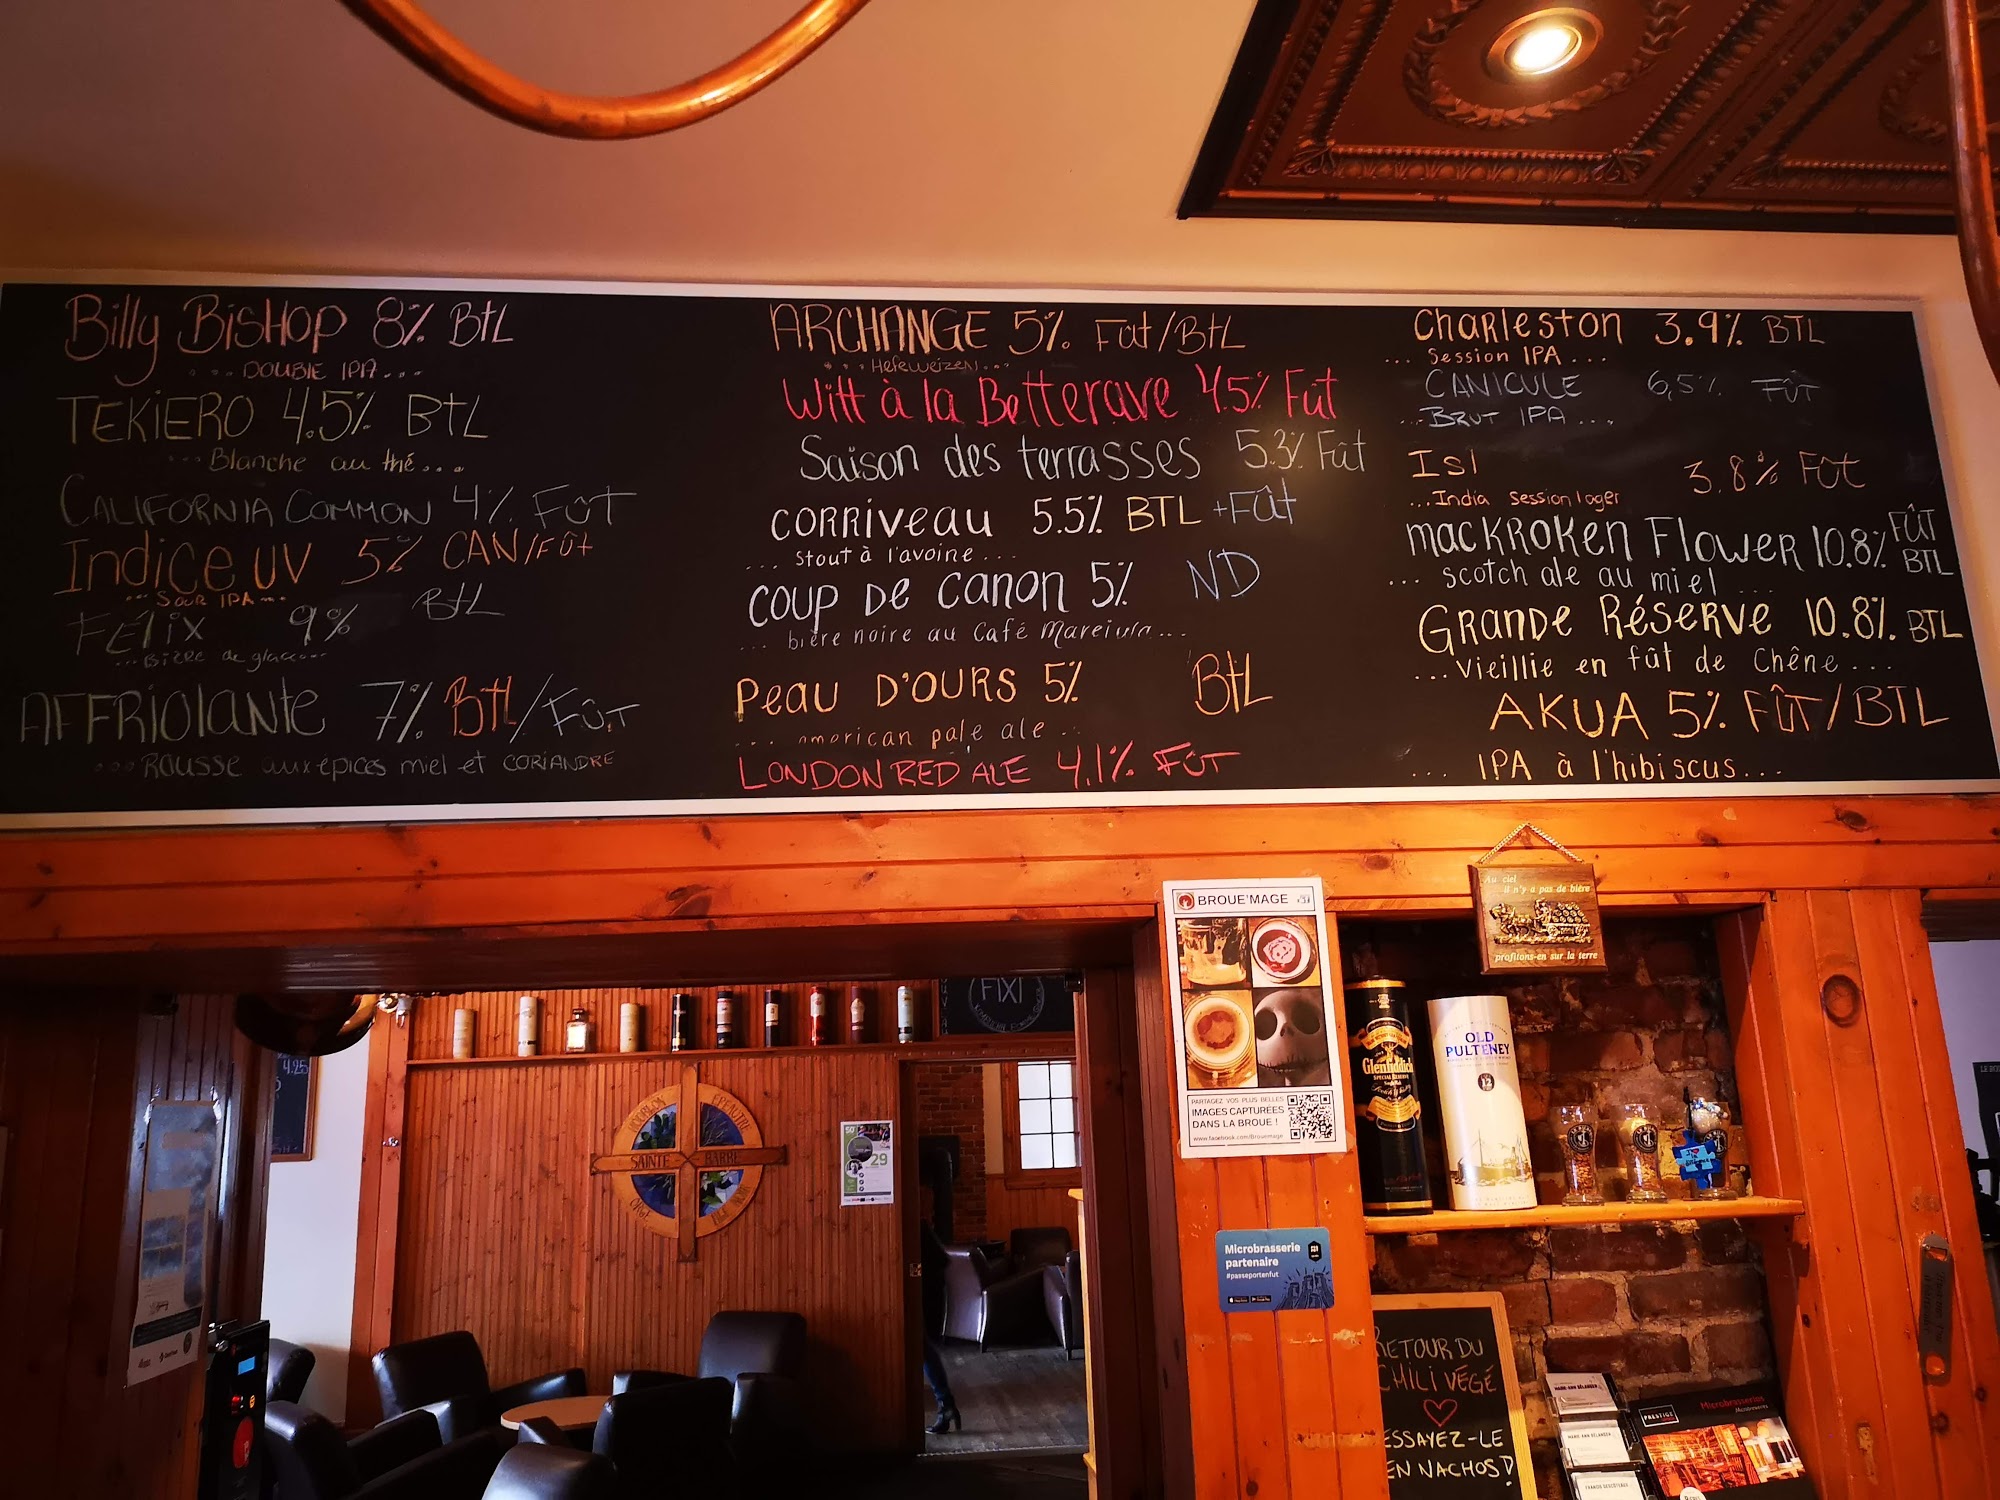 Billy Bishop 8% Btl
...Double IPA...
TEKiERO 4.5% Btl
...Blanche au thé...
California Common 4% Fût
Indice UV 5% CAN/Fût
...Sour IPA...
Félix 9% Btl
...Bière de glace...
Affriolante 7% Btl/Fût
...Rousse aux épices miel et coriandre
ARCHANGE 5% Fût/Btl
...Hefeweizen...
Witt à la Betterave 4.5% Fût
Saison des terrasses 5.3% Fût
Corriveau 5.5% BTL +Fût
... Stout à l'avoine...
Coup de canon 5% ND
... bière noire au Café
Peau D'OURS 5% Btl
... american pale ale ..
London Red Ale 4,1% Fût
Charleston 3.9% BTL
... Session IPA...
CANICULE 6,5% FÛT
...Brut IPA...
Isl 3.8% Fût
...India session lager
Mackroken Flower 10.8% FÛT BTL
... scotch ale au miel ...
Grande Réserve 10.8% BTL
...Vieillie en fût de Chêne...
AKUA 5% FÛT/BTL
... IPA à l'hibiscus...
Au ciel
il n'y a pas de bière
profitons-en sur la terre
BROUE'MAGE
PARTAGEZ VOS PLUS BELLES
IMAGES CAPTURÉES
DANS LA BROUE !
www.facebook.com/brouemage
Glenfiddich
SPECIAL RESERVE
OLD
PULTENEY
12
FIXI
4.25
HOUBLON ÉPEAUTRE
SAINTE BARBE
ORGE
50
29
Microbrasserie
partenaire
#passeportenfut
RETOUR DU
CHILI VÉGÉ
ESSAYEZ-LE
EN NACHOS!
PRESTIGE
Microbrasseries